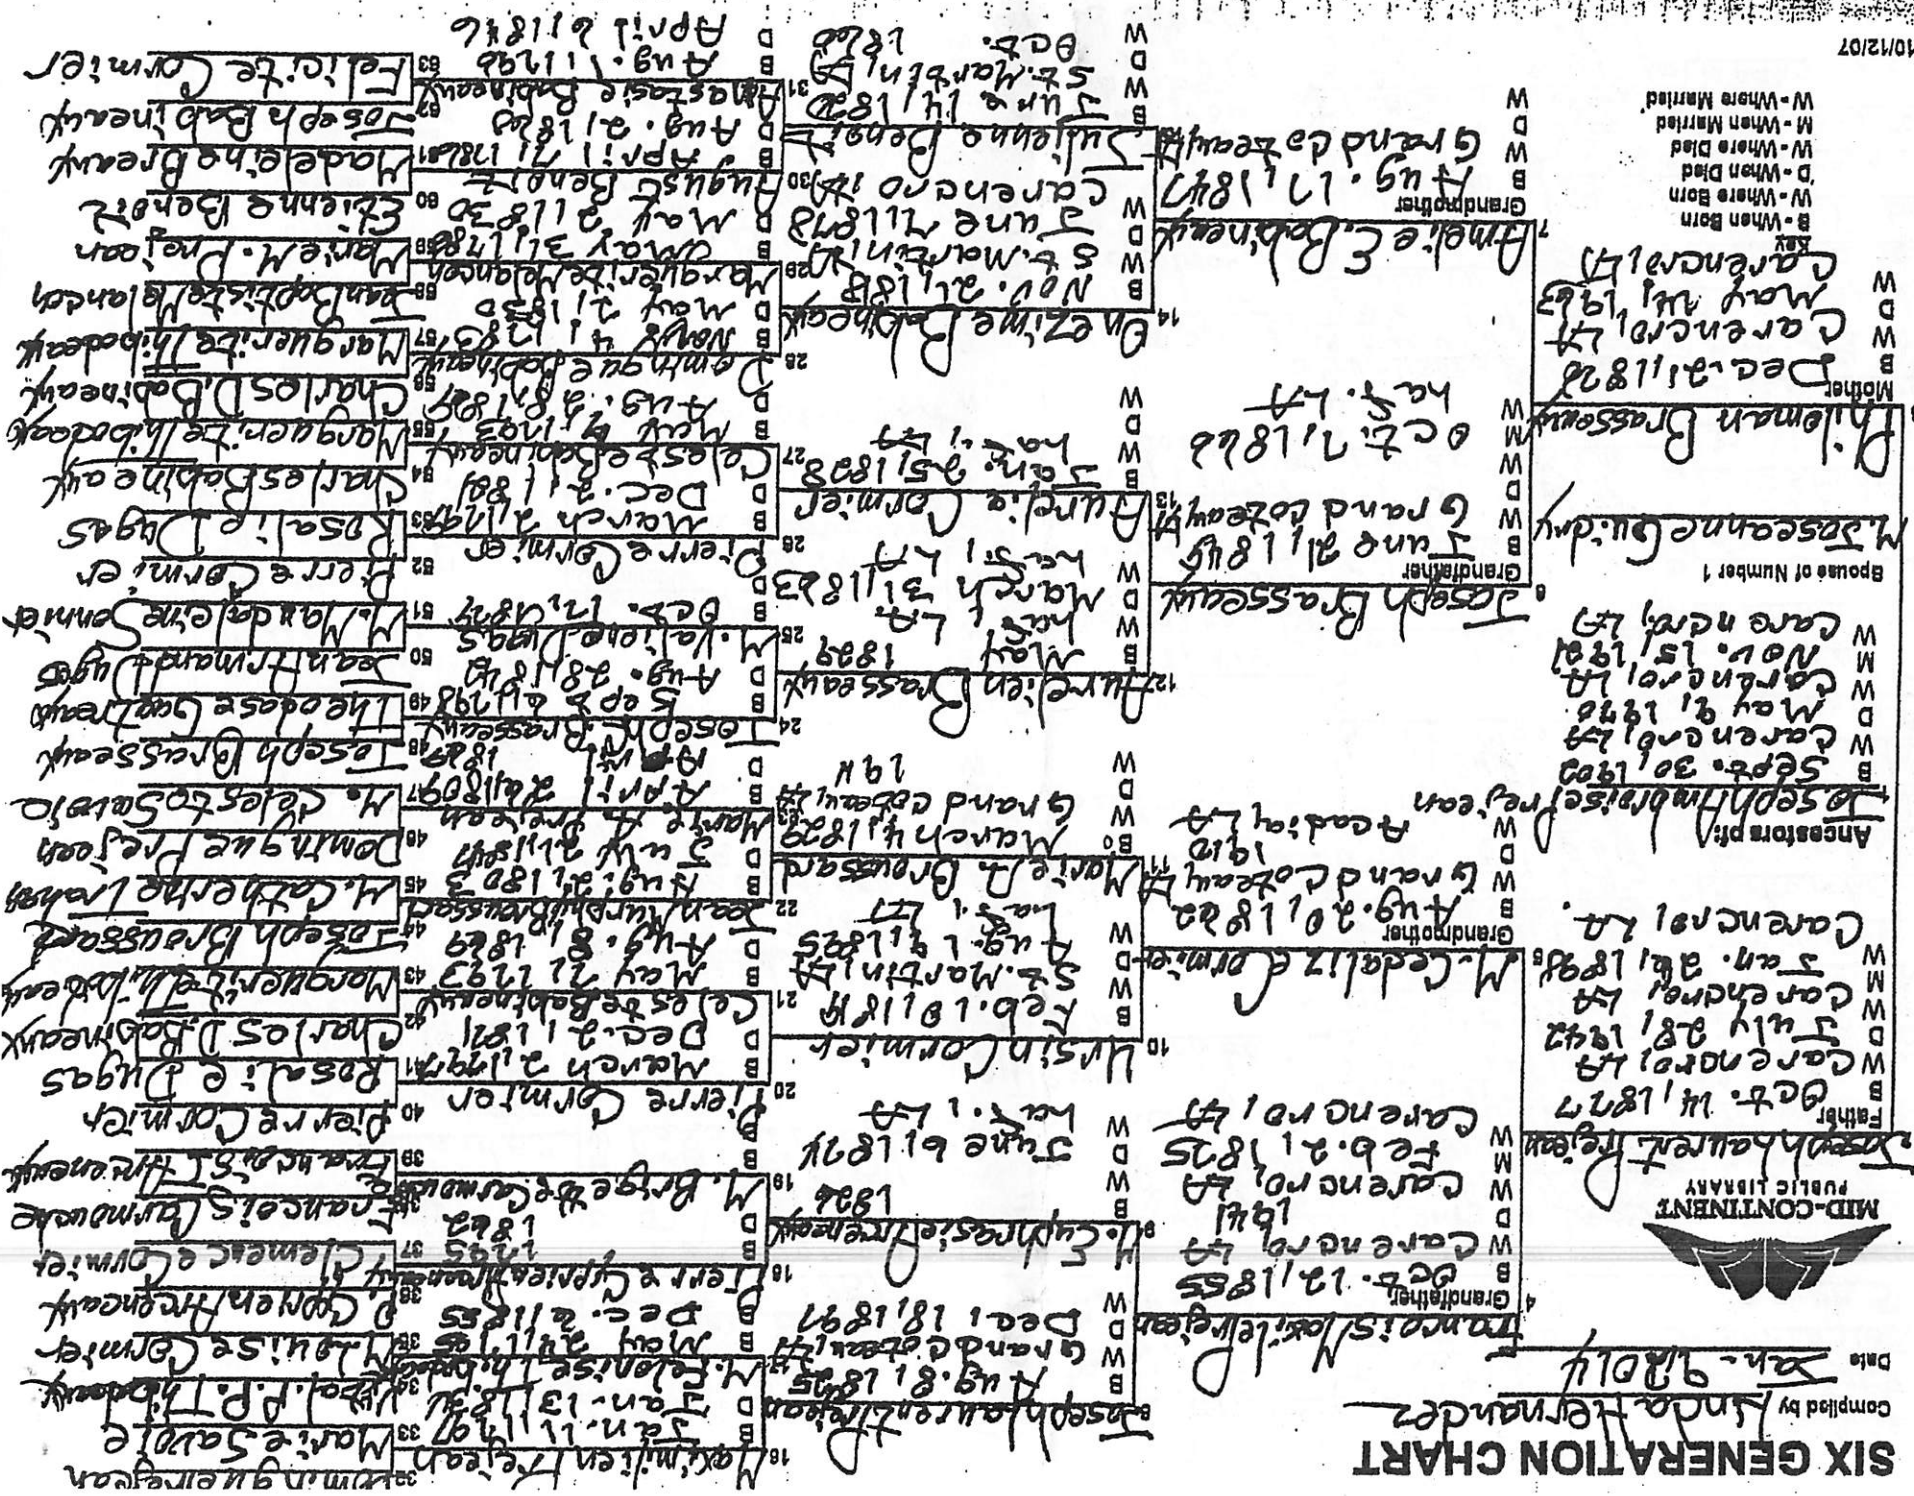 SIX GENERATION CHART
Compiled by Linda Hernandez
Date Jan-9,2014
MID-CONTINENT
PUBLIC LIBRARY
Ancestors of:
Joseph Ambroise Prejean
B Sept. 30, 1902
W Carencro, LA
D May 9, 1970
W Carencro, LA
M Nov. 15, 1921
W Carencro, LA
Spouse of Number 1
M. Joseanne Guidry
2 Joseph Laurent Prejean
Father
B Oct. 14, 1877
W Carencro, LA
D July 28, 1942
W Carencro, LA
M Jan. 26, 1898
W Carencro, LA.
Philoman Brasseaux
Mother
B Dec. 21, 1878
W Carencro, LA
D May 14, 1963
W Carencro, LA
Key
B - When Born
W - Where Born
D - When Died
W - Where Died
M - When Married
W - Where Married
10/12/07
4 Francois Maxile Prejean
Grandfather
B Oct. 12, 1855
W Carencro, LA
D 1941
W Carencro, LA
M Feb. 2, 1875
W Carencro, LA
5 M. Cedalize Cormier
Grandmother
B Aug. 20, 1862
W Grand Coteau, LA
D 1910
W Acadia, LA
6 Joseph Brasseaux
Grandfather
B June 21, 1846
W Grand Coteau, LA
D
W
M Oct. 7, 1866
W Laf. LA
7 Amelie E. Babineaux
Grandmother
B Aug. 17, 1847
W Grand Coteau, LA
D
W
8 Joseph Laurent Prejean
B Aug. 8, 1825
W Grand Coteau, LA
D Dec. 18, 1897
W
9 M. Euphrasie Arceneaux
B 1826
W
D June 6, 1874
W Laf., LA
10 Ursin Cormier
B Feb. 10, 1819
W St. Martin, LA
D Aug. 19, 1895
W Laf., LA
11 Marie A. Broussard
B March 4, 1829
W Grand Coteau, LA
D 1911
W
12 Aurelien Brasseaux
B May 1829
W Laf., LA
D March 31, 1863
W Laf., LA
13 Aurelia Cormier
B Jan. 25, 1828
W Laf., LA
D
W
14 Onezime Babineaux
B Nov. 21, 1818
W St. Martin, LA
D June 7, 1878
W Carencro, LA
Julienne Benoit
B June 14, 1820
W St. Martin, LA
D Oct. 1860
W
16 Maximilien Prejean
B Jan. 11, 1797
D Jan. 13, 1834
M. Felonise Thibodeaux
B May 24, 1805
D Dec. 6, 1855
18 Pierre Cyprien Arceneaux
B 1795
D 1862
19 M. Brigette Carmouche
B
D
20 Pierre Cormier
B March 2, 1797
D Dec. 2, 1821
21 Celeste Babineaux
B May 7, 1793
D Aug. 8, 1869
22 Jean Murphy Broussard
B Aug. 2, 1803
D July 2, 1847
23 Marie A. Prejean
B April 26, 1809
D April 1829
24 Joseph N. Brasseaux
B Sept. 6, 1798
D Aug. 28, 1842
25 M. Valiene Dugas
Oct. 12, 1827
26 Pierre Cormier
B March 2, 1797
D Dec. 2, 1821
27 Celeste Babineaux
B May 7, 1793
D Aug. 28, 1869
28 Dominque Babineaux
B Nov. 4, 1783
D May 2, 1830
29 Marguerite Melancon
B May 31, 1786
D May 2, 1830
30 August Benoit
B April 7, 1786
D Aug. 2, 1820
31 Anastasie Babineaux
B Aug. 1, 1796
D April 6, 1846
32 Dominque Prejean
33 Marie Savoie
34 P. Thibodeaux
35 M. Louise Cormier
36 P. Cyprien Arceneaux
37 Clemence Cormier
38 Francois Carmouche
39 Francoise Arceneaux
40 Pierre Cormier
41 Rosalie Dugas
42 Charles D. Babineaux
43 Marguerite Thibodeaux
44 Joseph Broussard
45 M. Catherine Trahan
46 Dominque Prejean
47 M. Celeste Savoie
48 Joseph Brasseaux
49 Theodase Guatreaux
50 Jean Armand Dugas
51 M. Maudeleine Sonnier
52 Pierre Cormier
53 Rosalie Dugas
54 Charles Babineaux
55 Marguerite Thibodeaux
56 Charles D. Babineaux
57 Marguerite Thibodeaux
58 Jean Baptiste Melancon
59 Marie M. Prejean
60 Etienne Benoit
61 Madeleine Breaux
62 Joseph Babineaux
63 Felicite Cormier